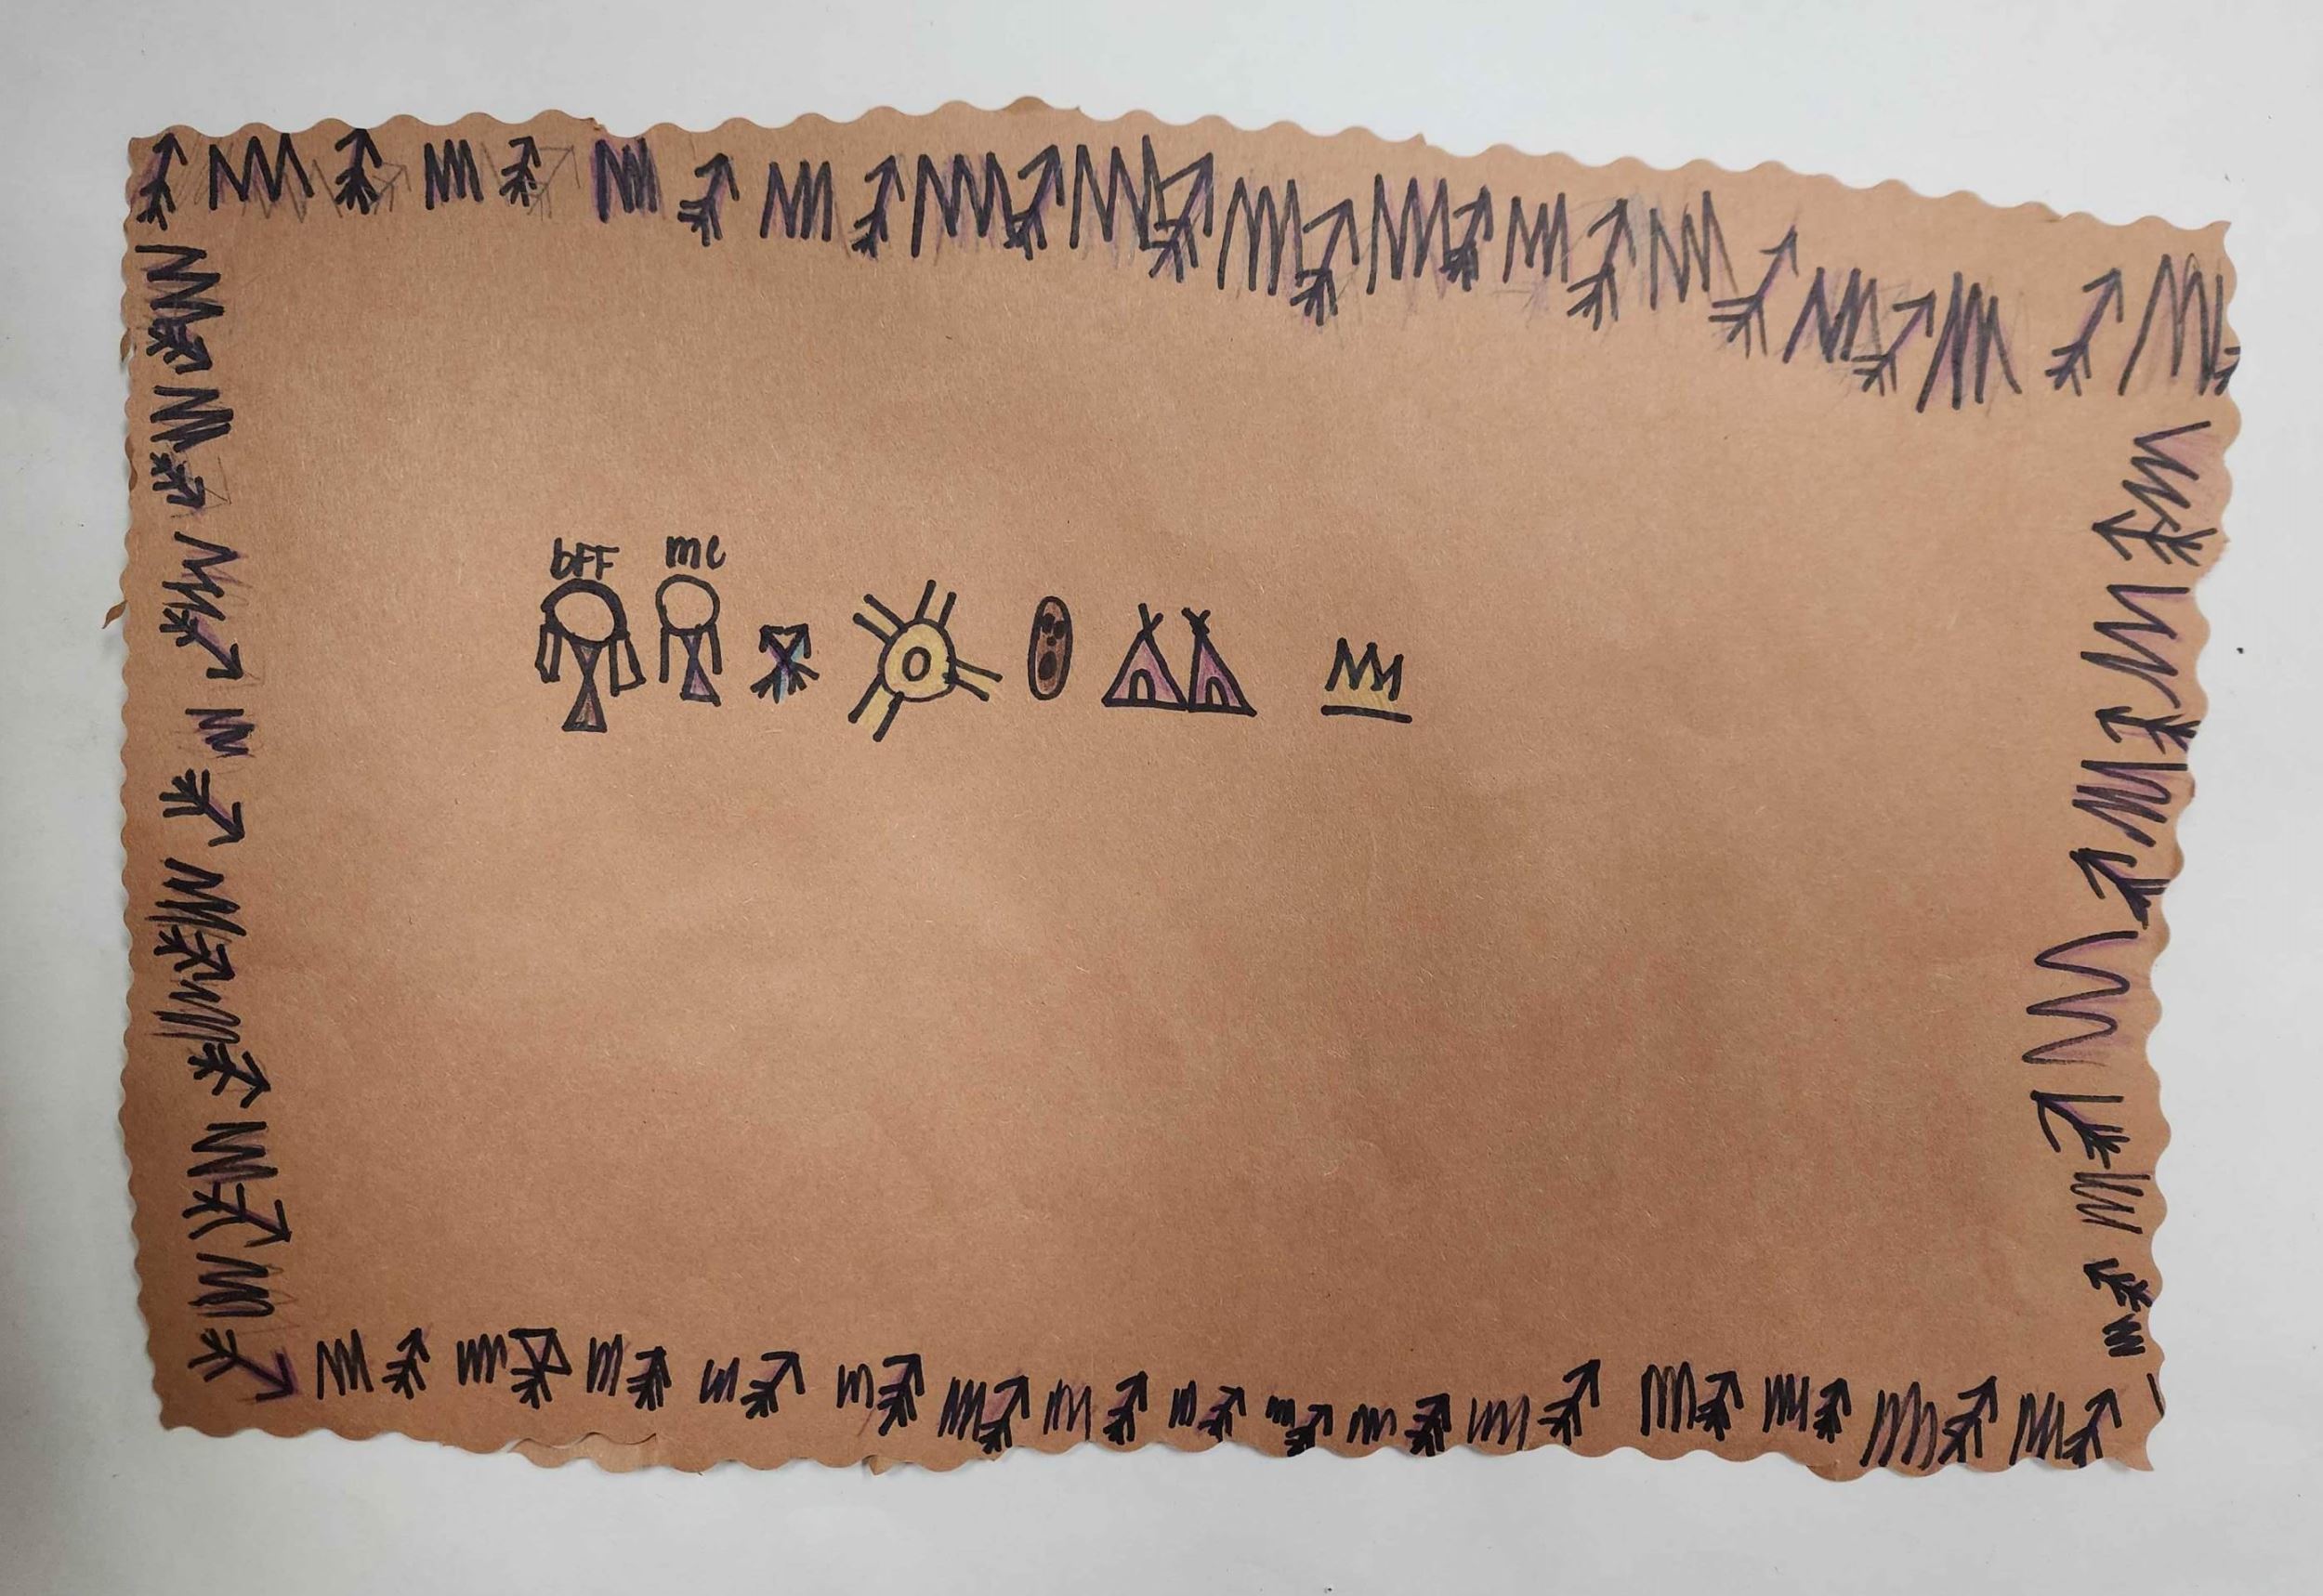 bff me